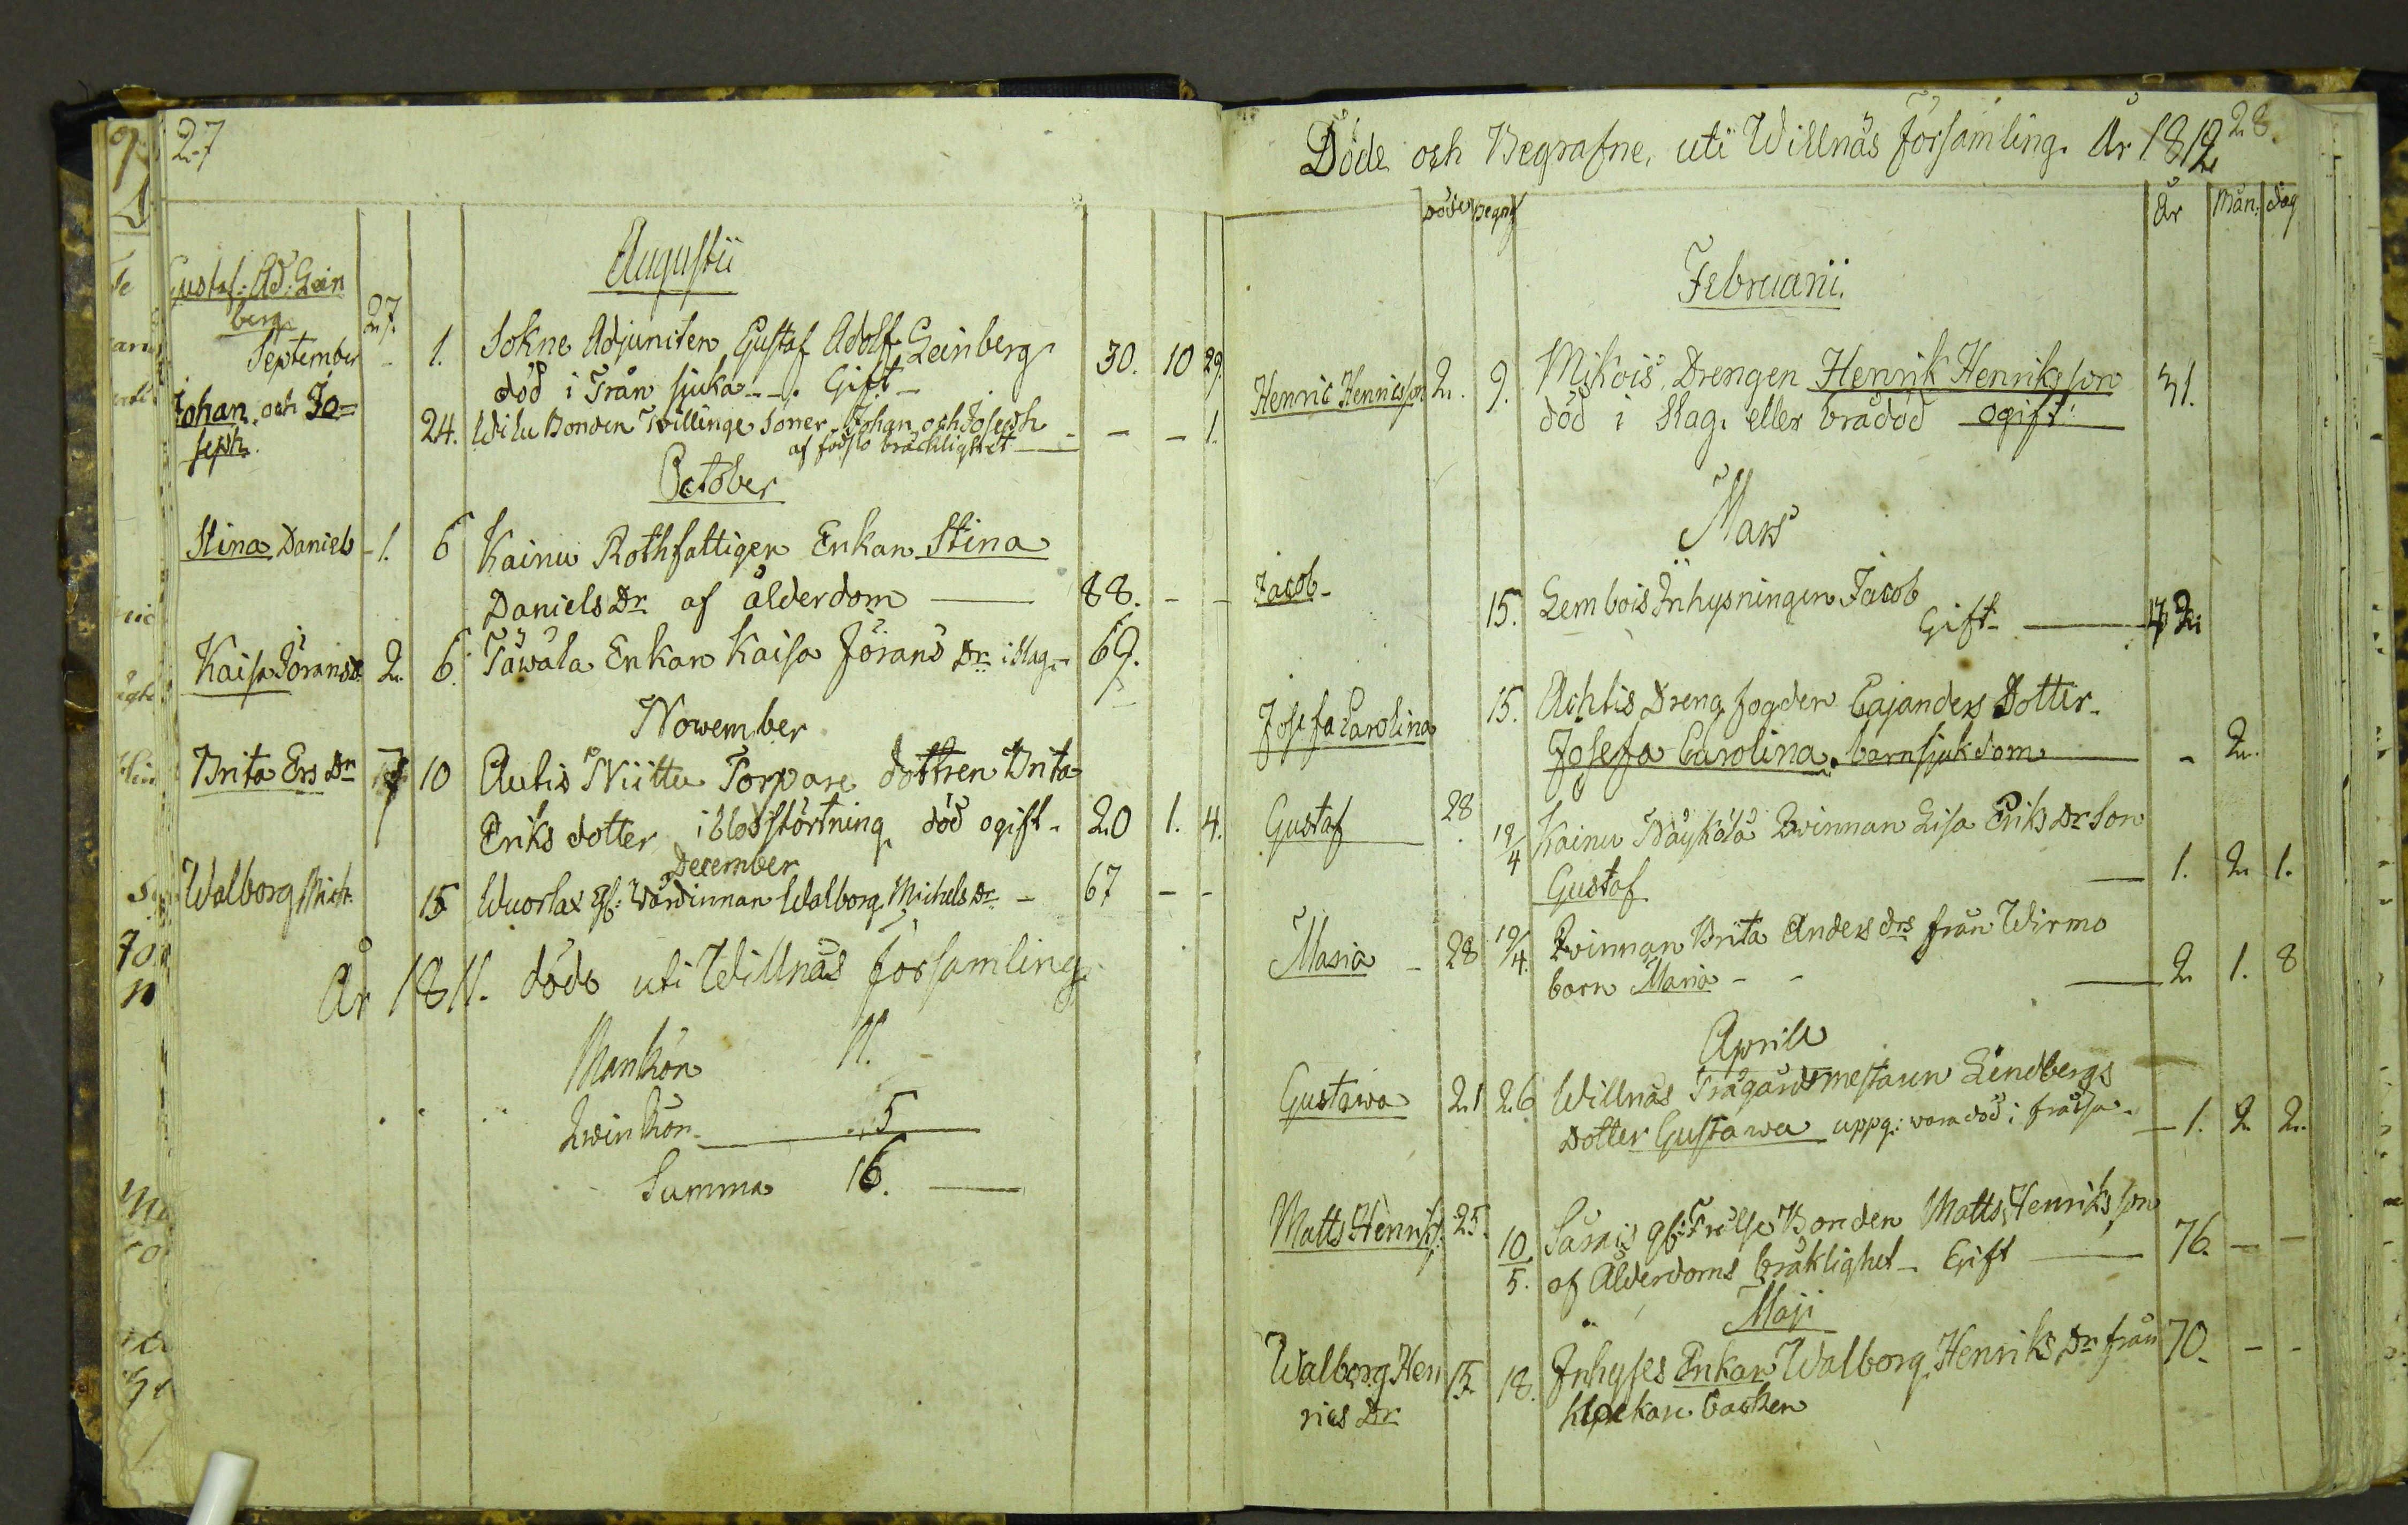 27
Augustii
Gustaf: Ad: Lein
berg
27.
September - 1. Sokne Adjuncten Gustaf Adolf Leinberg 30. 10 29.
död i Trån sjuka - . Gift -
Johan och Jo=
seph.
24. Wilu Bonden Twillinge Söner Johan och Joseph - - - 1.
af födslo bräcklighet
October
Stina Daniels - 1. 6 Kainu Rothfattigen Enkan Stina
Daniels Dr af ålderdom 88. - -
Kaisa Jörans d. 2. 6. Täwälä Enkan Kaisa Jörans Dr i slag - 69.
November
Brita Ers Dr 7 10 Autis Niittu Torpare dottren Brita
Eriks dotter i blodstörtning död ogift. 20 1. 4.
December
Walborg Mich. 15 Wuorlax gl: Wärdinnan Walborg Michels Dr - 67 - -
År 1811. döde uti Willnäs församling
Mankön 11.
Qwinkön 5
Summa 16.
28.
Döde och Begrafne, uti Willnäs församling. År 1812
Döde Begrf År Mån: dag
Februarii.
Henric Henricsson 2. 9. Mikois Drengen Henrik Henriksson 31.
död i slag. eller brådöd ogift.
Mars
Jacob - 15. Lembois Inhysningen Jacob
Gift - 72.
Josefa Carolina 15. Achtis Dreng fogden Cajanders Dotter.
Josefa Carolina. barnsjukdom - 2.
Gustaf 28 12/4 Kainu Näykälä Qwinnan Lisa Eriks Dr Son
Gustaf 1. 2 1.
Maria - 28 12/4. Qwinnan Brita Anders drs från Wirmo
barn Maria - - 2 1. 8
Aprill
Gustawa 21 26 Willnäs Trägårdsmestaren Lindbergs
Dotter Gustawa uppg: wara död i fråssa. 1. 2 2.
Matts Henrics. 25. 10/5. Särnis gl: Frälse Bonden Matts Henriksson
af Ålderdoms bräklighet - Gift 76. - -
Maji
Walborg Hen
rics Dr
15. 18. Inhyses Enkan Walborg Henriks Dr från 70. - -
klockare backen